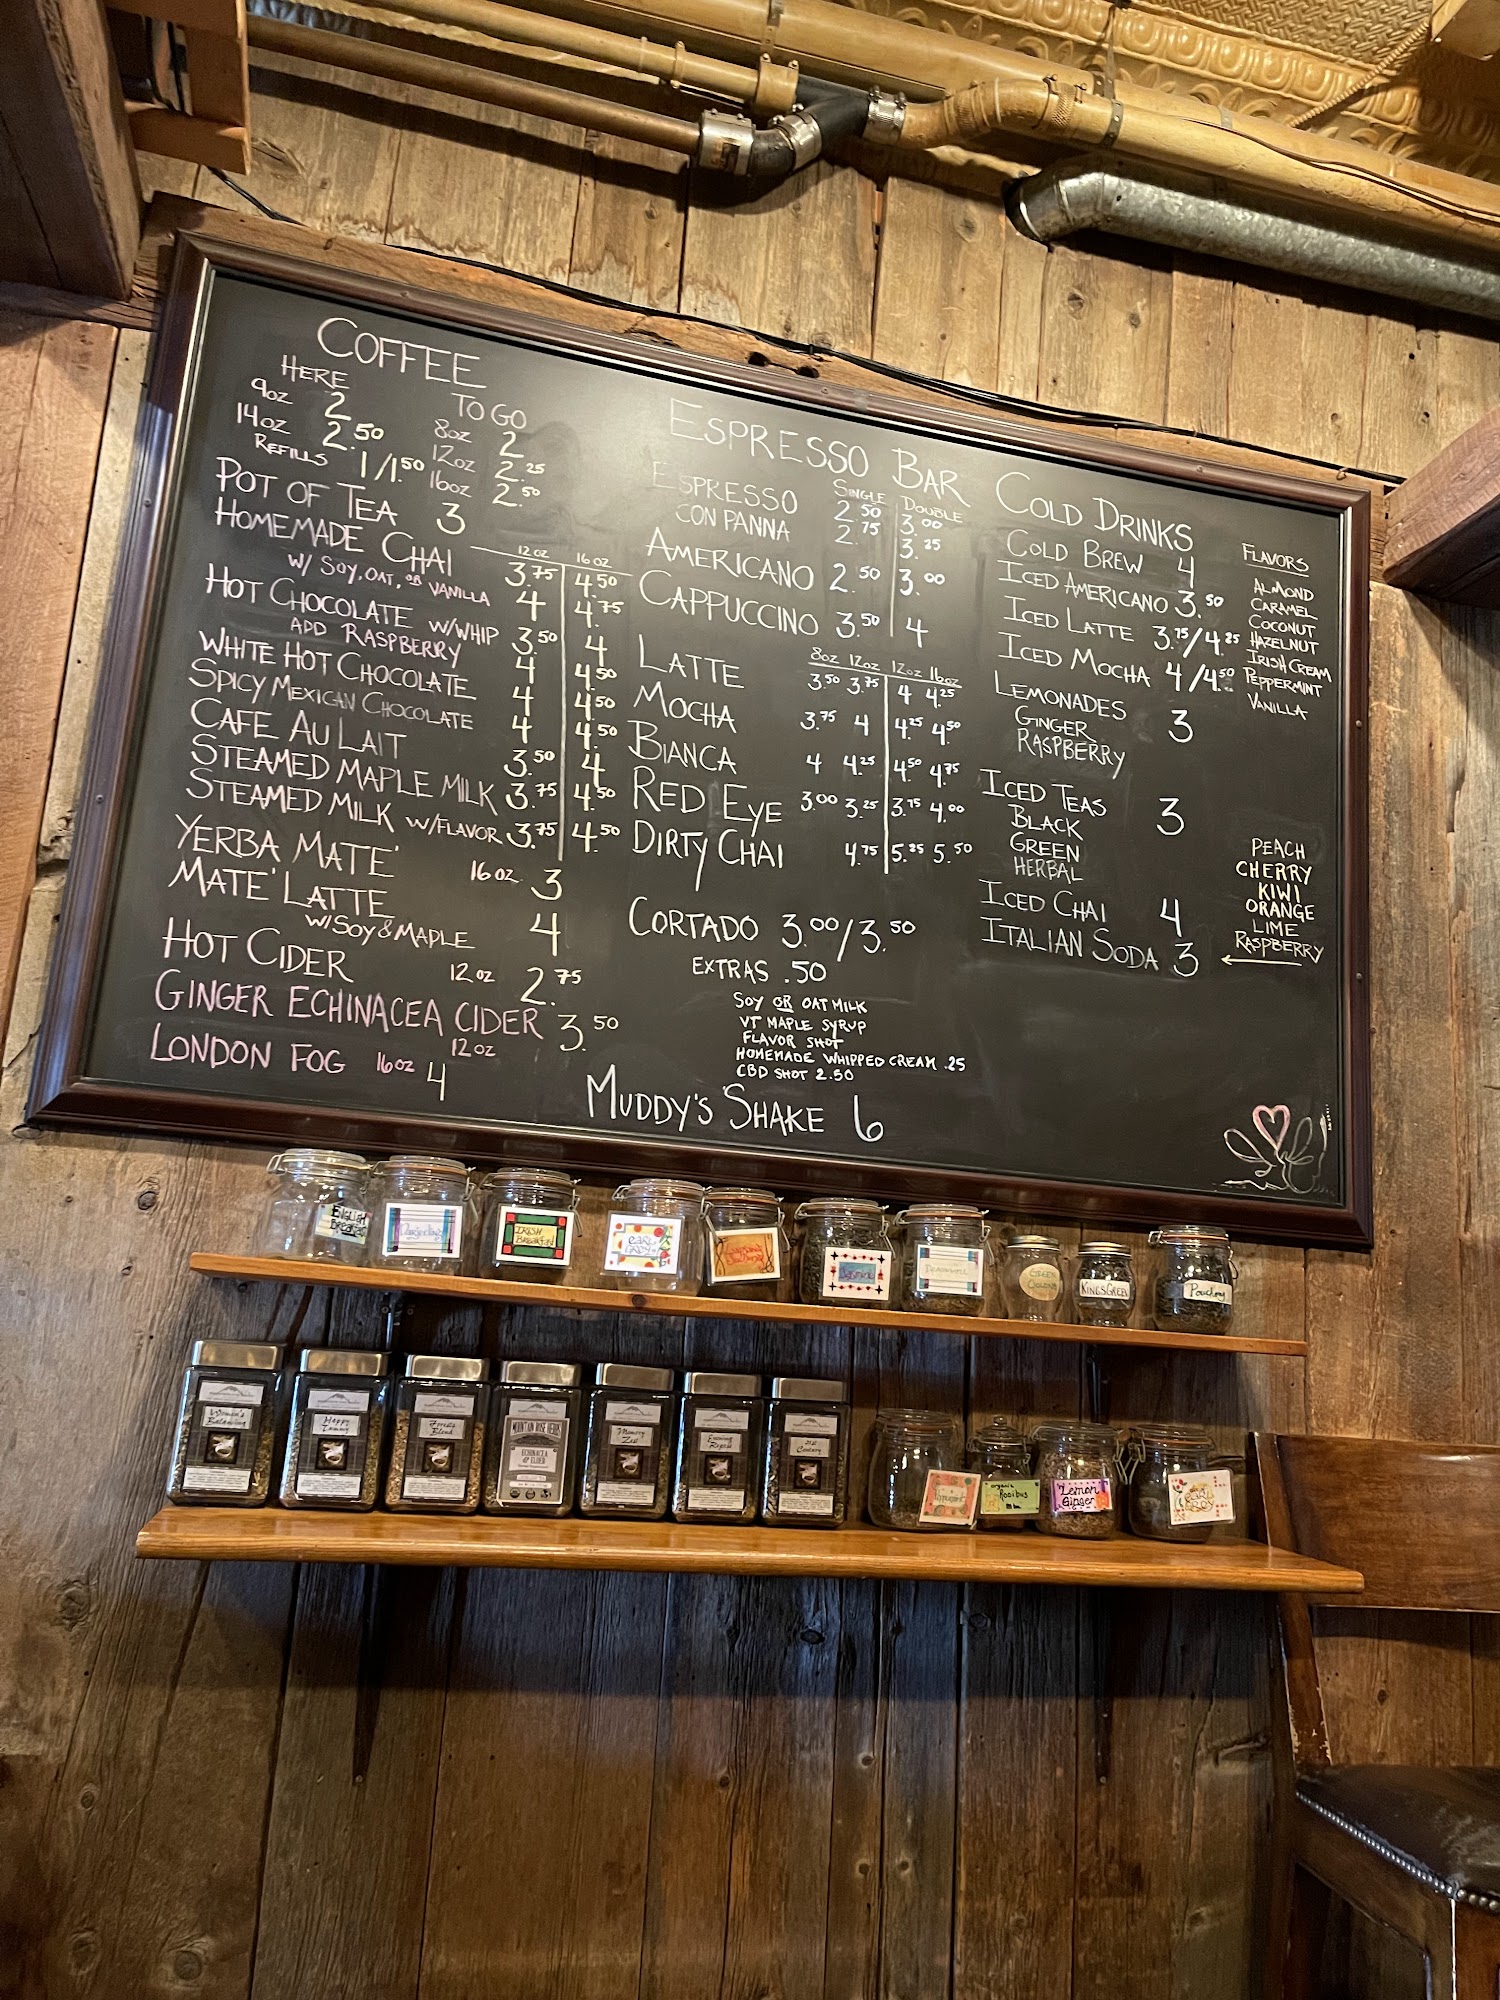 COFFEE
HERE
9oz 2
14oz 2.50
REFILLS 1/1.50
TO GO
8oz 2
12oz 2.25
16oz 2.50
POT OF TEA 3
12oz 16oz
HOMEMADE CHAI 3.75 4.50
W/ SOY, OAT, OR VANILLA 4 4.75
HOT CHOCOLATE W/WHIP 3.50 4
ADD RASPBERRY 4 4.50
WHITE HOT CHOCOLATE 4 4.50
SPICY MEXICAN CHOCOLATE 4 4.50
CAFE AU LAIT 3.50 4
STEAMED MAPLE MILK 3.75 4.50
STEAMED MILK W/FLAVOR 3.75 4.50
YERBA MATE' 16oz 3
MATE' LATTE
W/SOY & MAPLE 4
HOT CIDER 12oz 2.75
GINGER ECHINACEA CIDER 3.50
12oz
LONDON FOG 16oz 4
ESPRESSO BAR
SINGLE DOUBLE
ESPRESSO 2.50 3.00
CON PANNA 2.75 3.25
AMERICANO 2.50 3.00
CAPPUCCINO 3.50 4
8oz 12oz 12oz 16oz
LATTE 3.50 3.75 4 4.25
MOCHA 3.75 4 4.25 4.50
BIANCA 4 4.25 4.50 4.75
RED EYE 3.00 3.25 3.75 4.00
DIRTY CHAI 4.75 5.25 5.50
CORTADO 3.00/3.50
EXTRAS .50
SOY OR OAT MILK
VT MAPLE SYRUP
FLAVOR SHOT
HOMEMADE WHIPPED CREAM .25
CBD SHOT 2.50
MUDDY'S SHAKE 6
COLD DRINKS
COLD BREW 4
ICED AMERICANO 3.50
ICED LATTE 3.75/4.25
ICED MOCHA 4/4.50
LEMONADES 3
GINGER
RASPBERRY
ICED TEAS 3
BLACK
GREEN
HERBAL
ICED CHAI 4
ITALIAN SODA 3
FLAVORS
ALMOND
CARAMEL
COCONUT
HAZELNUT
IRISH CREAM
PEPPERMINT
VANILLA
PEACH
CHERRY
KIWI
ORANGE
LIME
RASPBERRY
ENGLISH
Breakfast
Darjeeling
IRISH
BREAKFAST
EARL
GREY
Jasmine
Dragonwell
KINGS GREEN
Pouchong
Women's
Balancing
Happy
Tummy
Forest
Blend
MOUNTAIN ROSE HERBS
ECHINACEA
& ELDER
Memory
Zest
Evening
Repose
21st
Century
organic
Rooibos
Lemon
Ginger
EARL
GREY